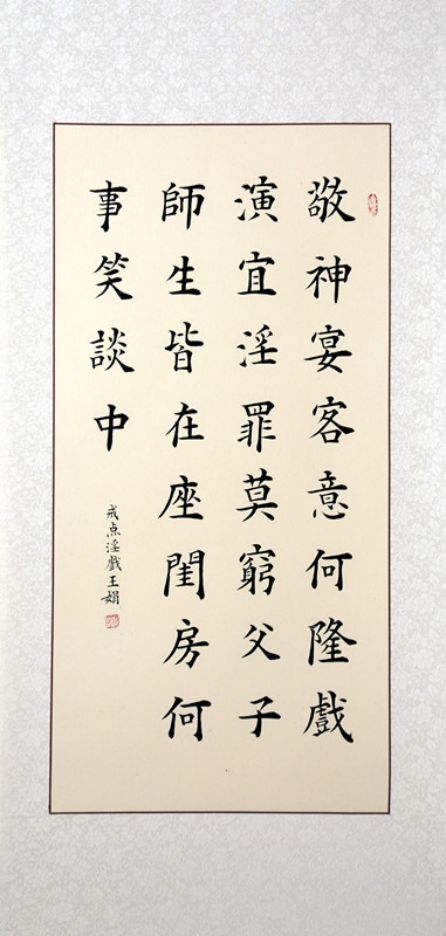 敬神宴客意何隆戲
演宜淫罪莫窮父子
師生皆在座閨房何
事笑談中
戒点淫戲王娟